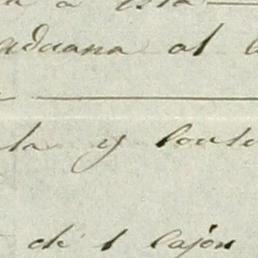 a esta
aduana al
la y conte
de 1 cajon